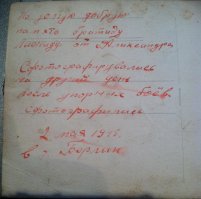 На долгую добрую
память братишу
Михаилу от Александра
Сфотографировались
на другой день
после упорных боёв
сфотографились
2 мая 1945г.
в г. Берлин